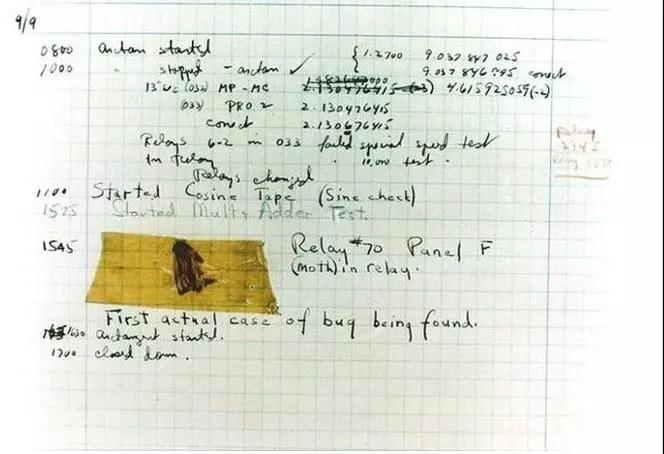 9/9
0800 antan started { 1.2700 9.037 847 025
1000 " stopped - antan ✓ 9.037 846 995 conect
13"uc (032) MP - MC 2.130476415 (-3) 4.615925059(-2)
(033) PRO 2 2.130476415
conect 2.130676415
Relays 6-2 in 033 failed special speed test
in relay " 10,000 test .
Relays changed
Relay
2145
Relay 3370
1100 Started Cosine Tape (Sine check)
1525 Started Mult + Adder Test.
1545 Relay #70 Panel F
(moth) in relay.
First actual case of bug being found.
1630 antangent started.
1700 closed down.